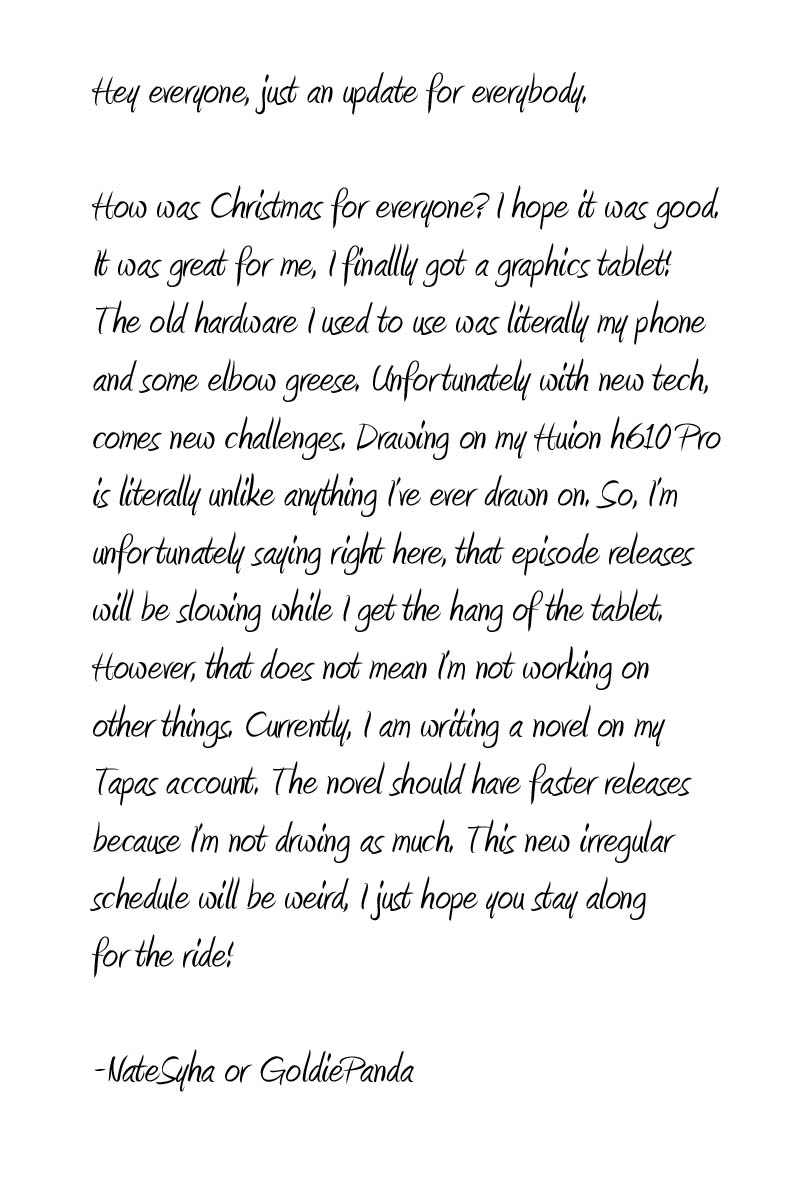 Hey everyone, just an update for everybody.
How was Christmas for everyone? I hope it was good.
It was great for me, I finallly got a graphics tablet!
The old hardware I used to use was literally my phone
and some elbow greese. Unfortunately with new tech,
comes new challenges. Drawing on my Huion h610 Pro
is literally unlike anything I've ever drawn on. So, I'm
unfortunately saying right here, that episode releases
will be slowing while I get the hang of the tablet.
However, that does not mean I'm not working on
other things. Currently, I am writing a novel on my
Tapas account. The novel should have faster releases
because I'm not drwing as much. This new irregular
schedule will be weird, I just hope you stay along
for the ride!
-NateSyha or GoldiePanda